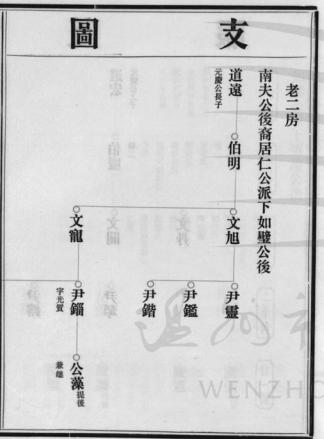 支圖
老二房
南夫公後裔居仁公派下如璧公後
道遠
元慶公長子
伯明
文旭
文寵
尹靈
尹鑑
尹鍇
尹錙
字光賀
公藻
提後
兼繼
WENZHO